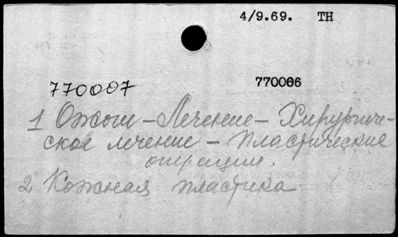 4/9.69. ТН
770007
770006
1 Ожоги – Лечение – Хирургиче-
ское лечение – пластические
операции.
2 Кожная пластика